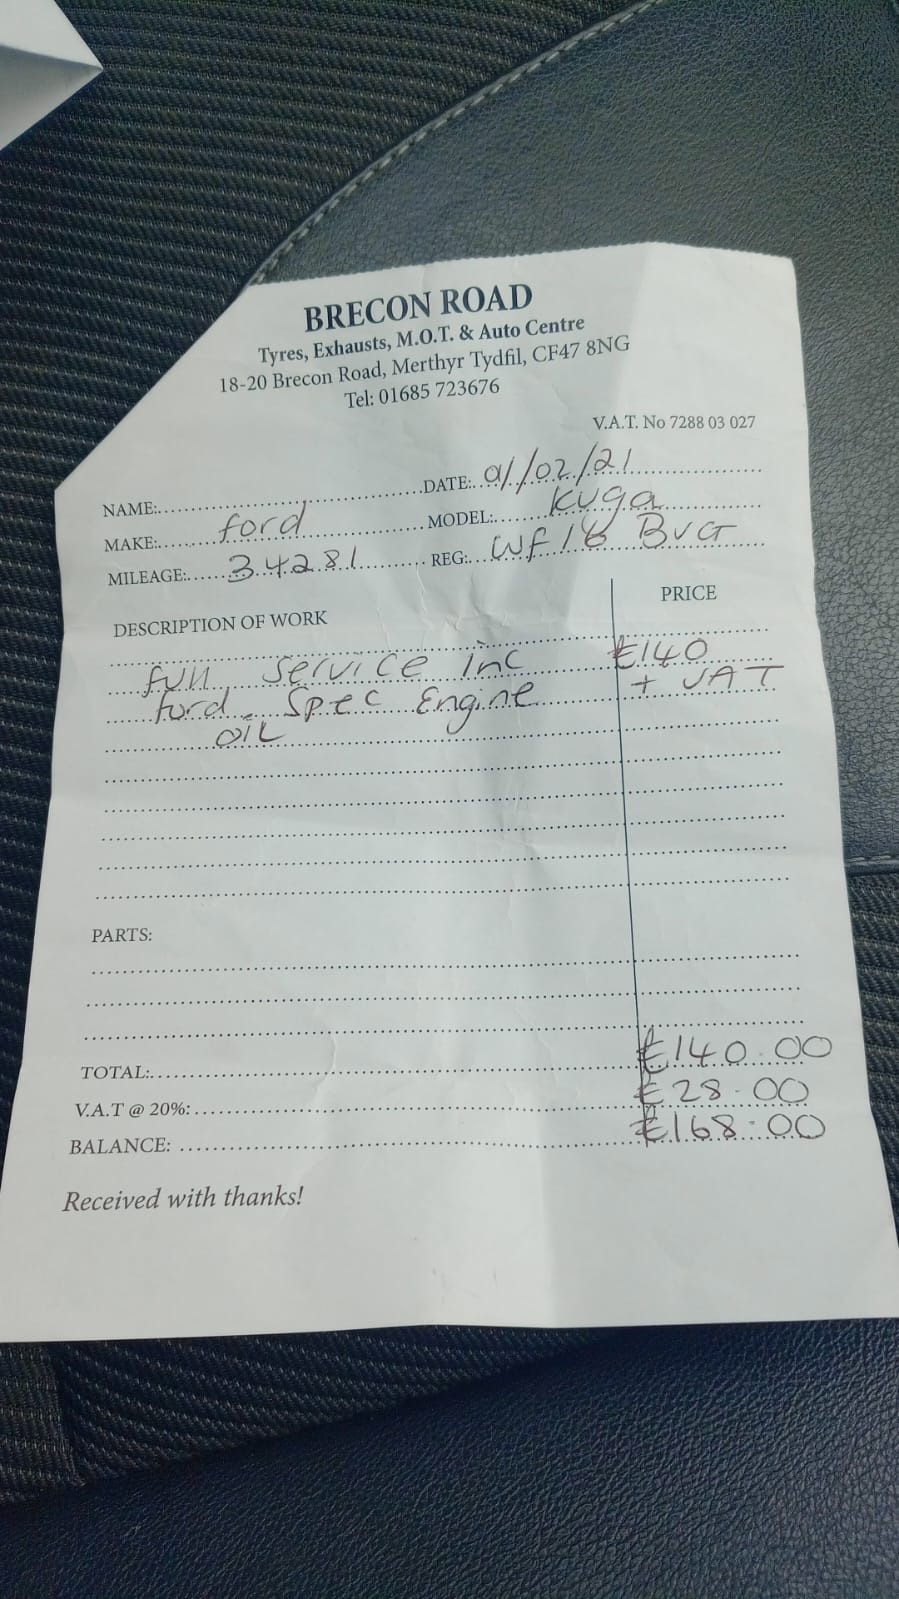 BRECON ROAD
Tyres, Exhausts, M.O.T. & Auto Centre
18-20 Brecon Road, Merthyr Tydfil, CF47 8NG
Tel: 01685 723676
V.A.T. No 7288 03 027
NAME: DATE: 01/02/21
MAKE: Ford MODEL: Kuga
MILEAGE: 34281 REG: WF16 BVG
DESCRIPTION OF WORK PRICE
Full Service Inc £140
Ford Spec Engine + VAT
OIL
PARTS:
TOTAL: £140.00
V.A.T @ 20%: £28.00
BALANCE: £168.00
Received with thanks!